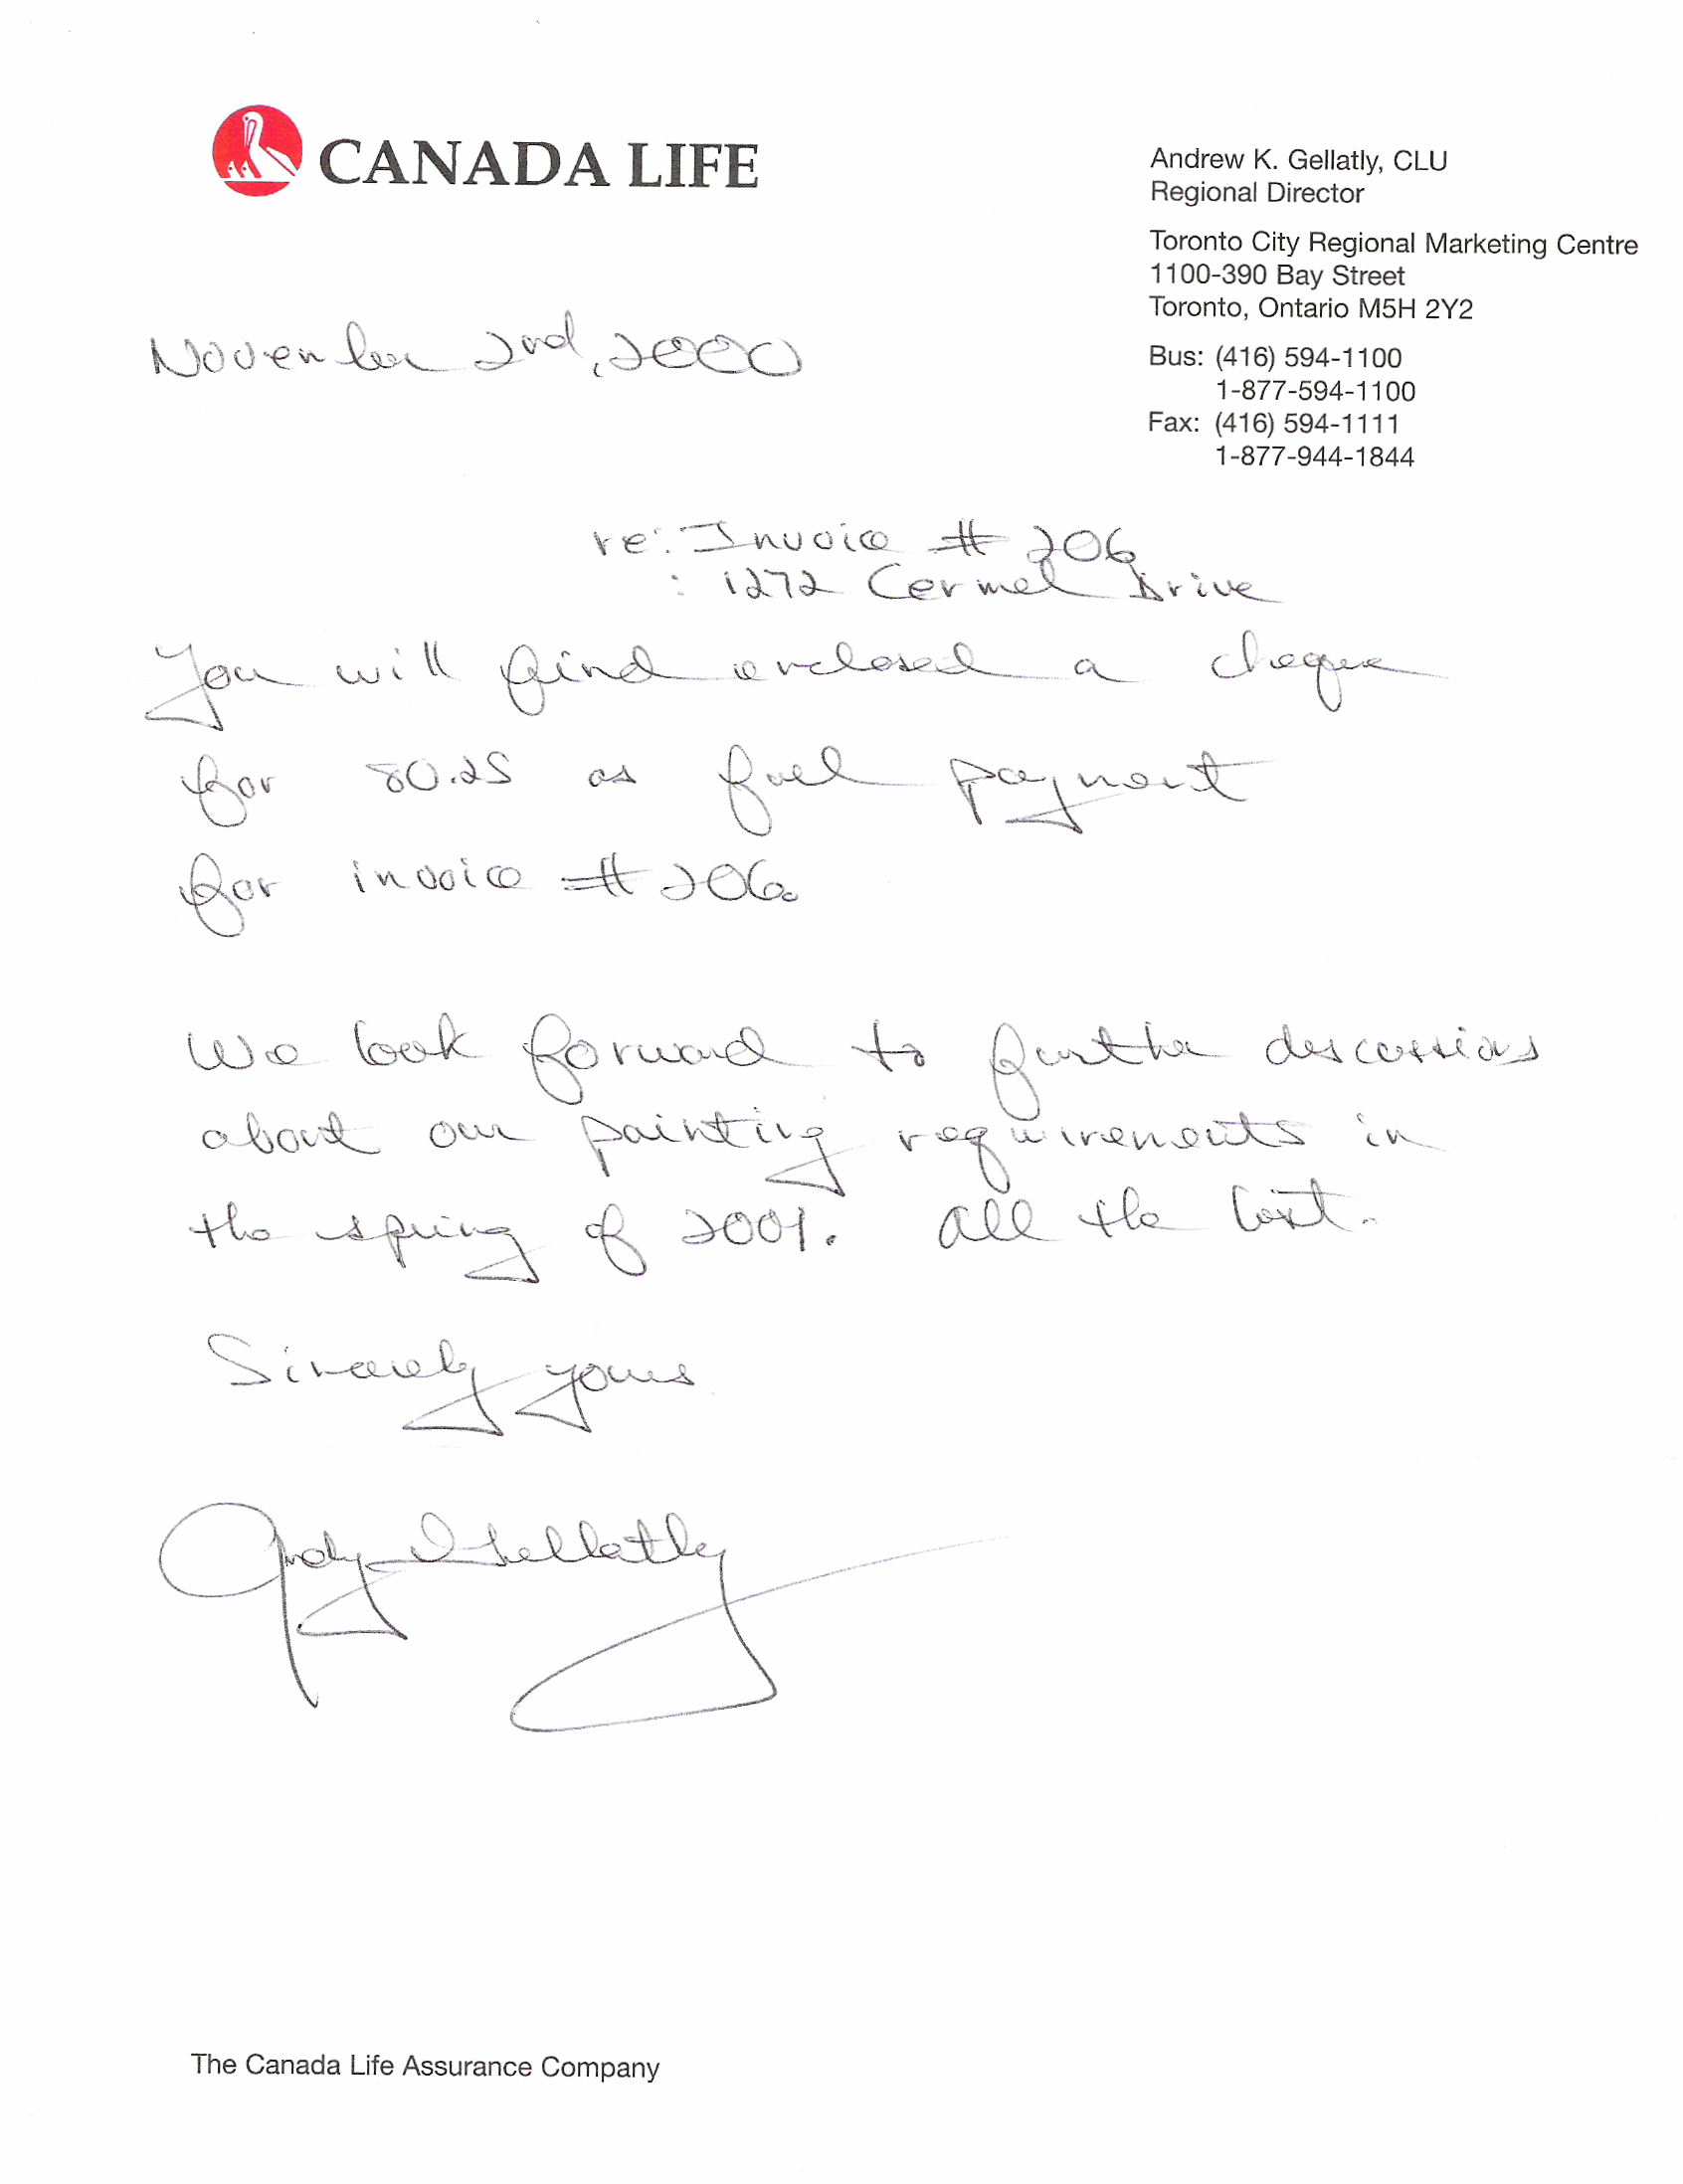 CANADA LIFE
Andrew K. Gellatly, CLU
Regional Director
Toronto City Regional Marketing Centre
1100-390 Bay Street
Toronto, Ontario M5H 2Y2
Bus: (416) 594-1100
1-877-594-1100
Fax: (416) 594-1111
1-877-944-1844
November 2nd, 2000
re: Invoice # 206
: 1272 Cermel Drive
You will find enclosed a cheque
for 80.25 as full payment
for invoice # 206.
We look forward to further discussions
about our painting requirements in
the spring of 2001. All the best.
Sincerely yours
Andy Gellatly
The Canada Life Assurance Company